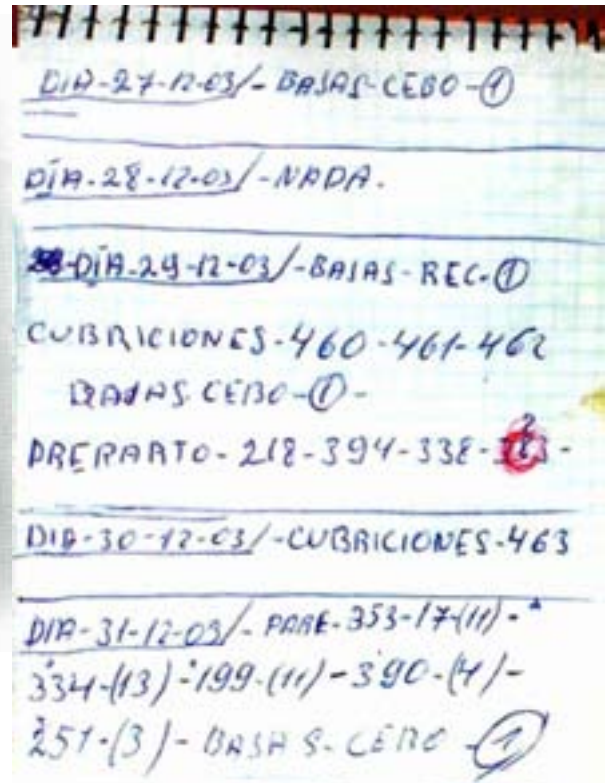 DIA-27-12-03/-BAJAS-CEBO-①
DÍA-28-12-03/-NADA.
DÍA-29-12-03/-BAJAS-REC-①
CUBRICIONES-460-461-462
BAJAS CEBO-①-
PREPARTO-218-394-338-
DIA-30-12-03/-CUBRICIONES-463
DIA-31-12-03/-PARE-353-17-(11)-
334-(13)-199-(11)-390-(4)-
251-(3)-BAJAS-CEBO-①